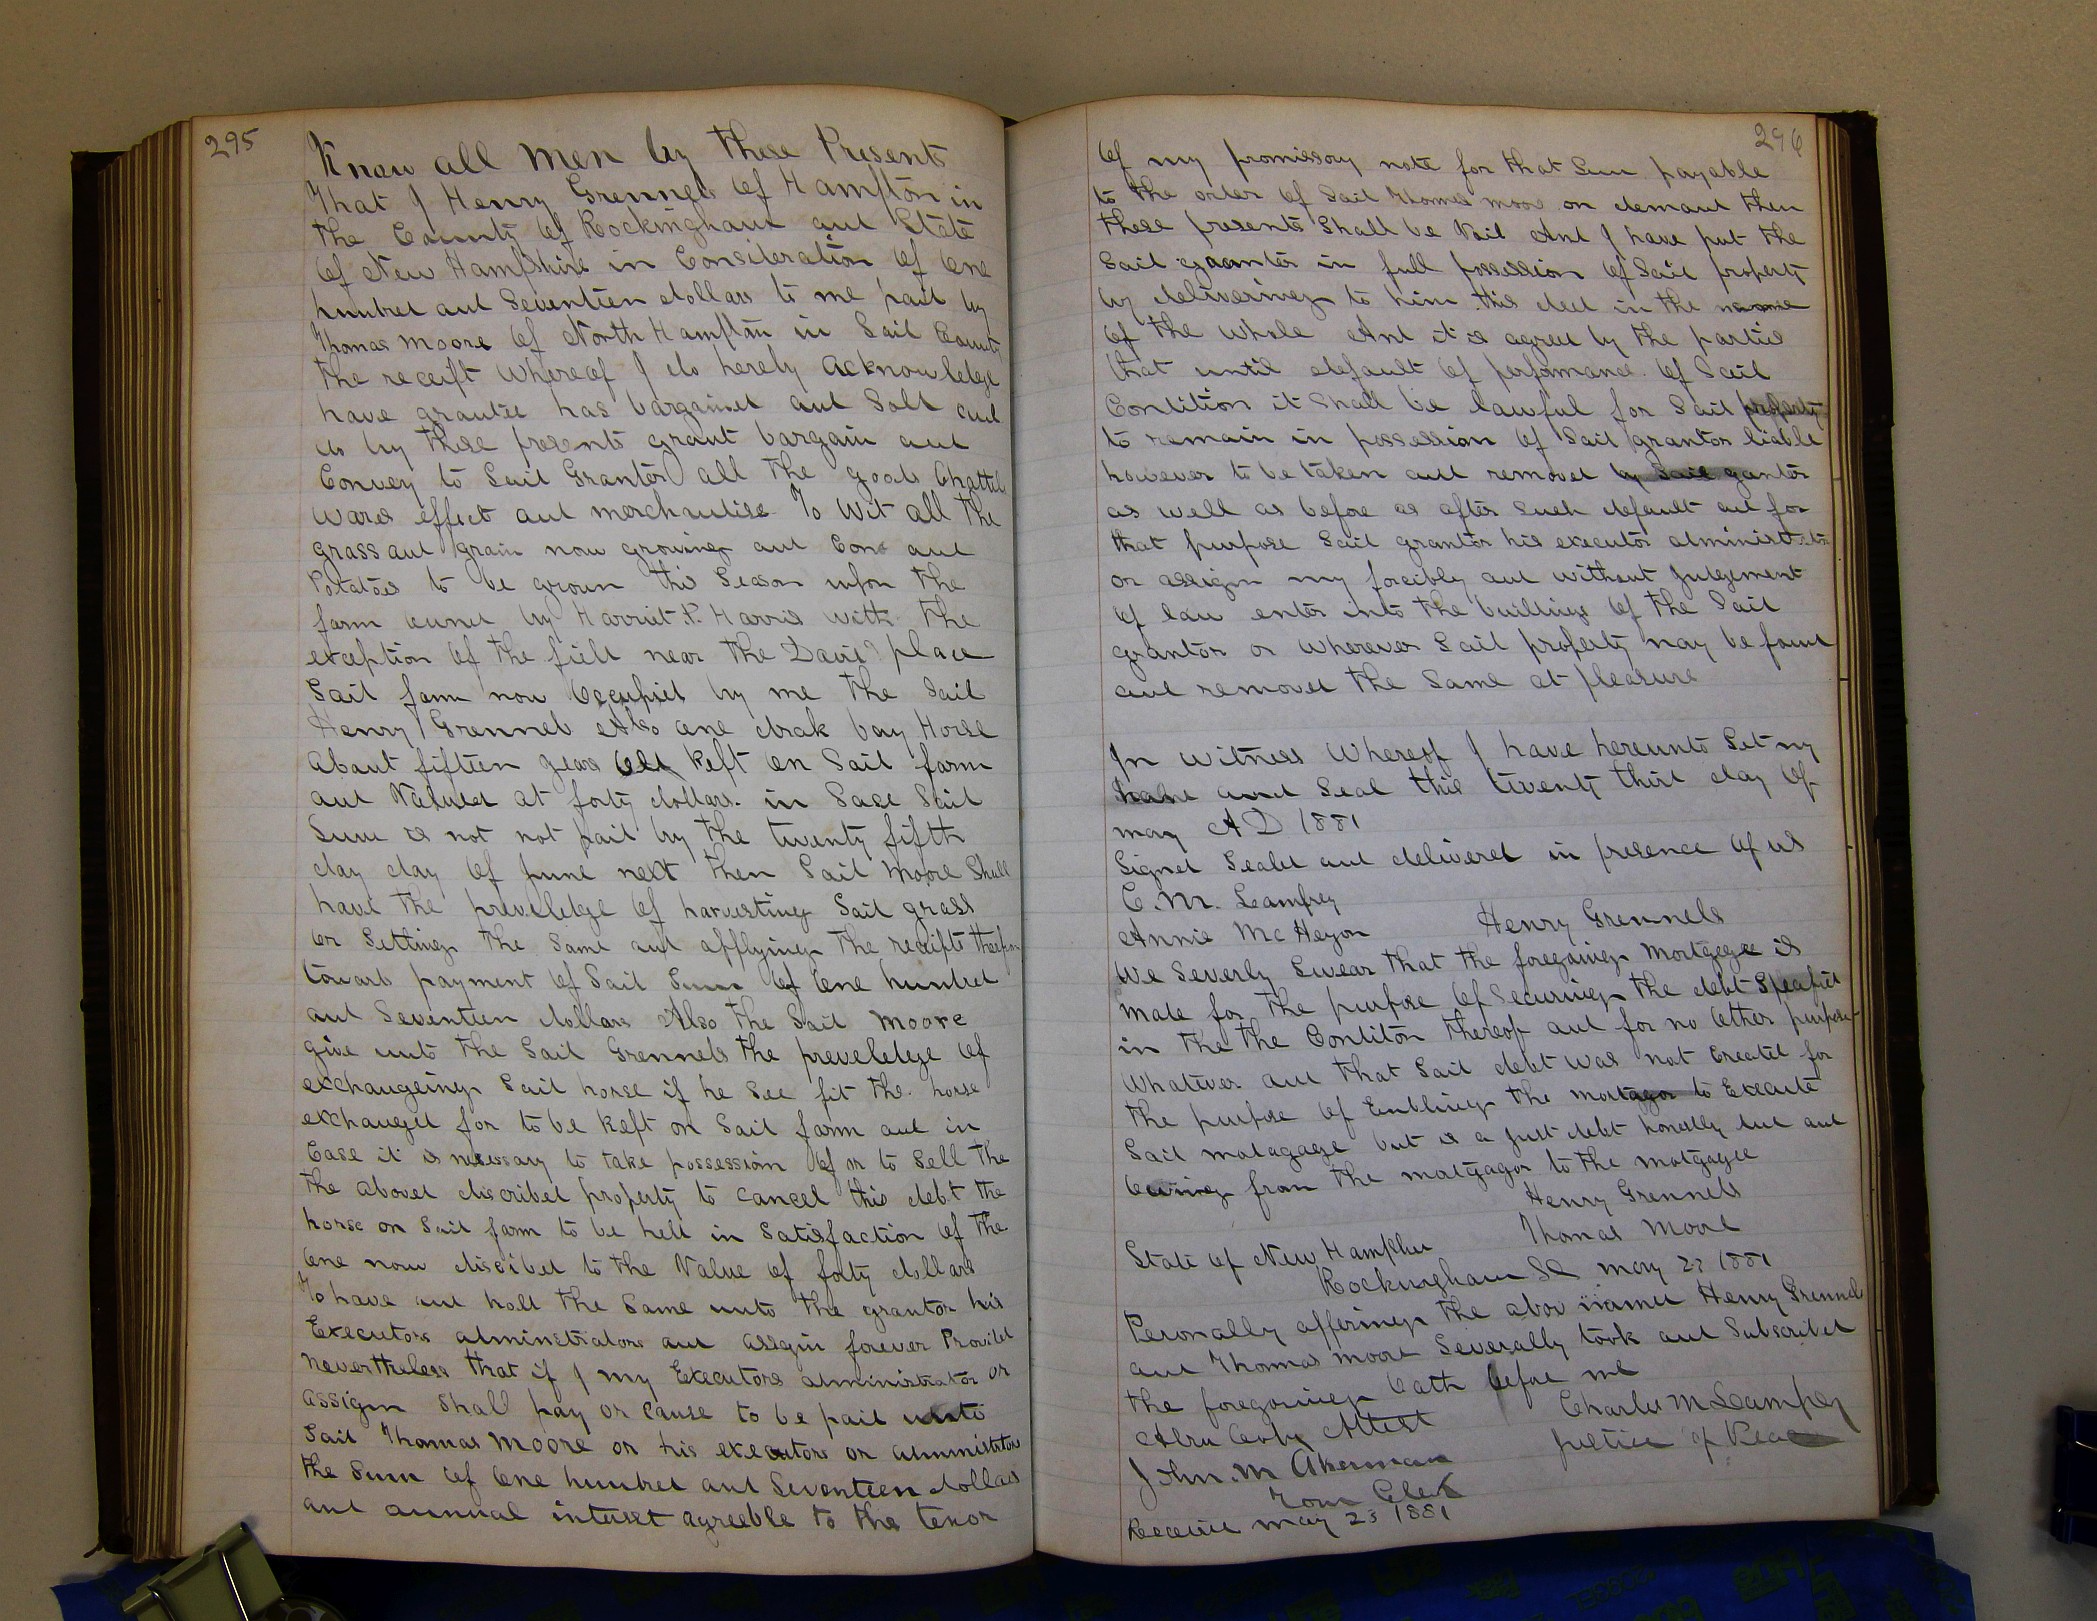 295
Know all men by these Presents
That I Henry Grennels of Hampton in
the County of Rockingham and State
of New Hampshire in Consideration of One
hundred and Seventeen dollars to me paid by
Thomas Moore of North Hampton in Said County
the receipt Whereof I do herely acknowledge
have granted has bargained and Sold and
do by these presents grant bargain and
Convey to Said Grantor all the goods Chattels
Wares effect and merchandise To Wit all the
grass and grain now growing and Corn and
Potatoes to be grown this Season upon the
farm owned by Harriet P. Harris with the
exception of the field near the Davis place
Said farm now Occupied by me the Said
Henry Grennels Also one drak bay Horse
About fifteen years Old Kept on Said farm
and Valued at forty dollars. in Case Said
Sum is not not paid by the twenty fifth
day day of June next then Said Moore Shall
have the preveledge of harvesting Said grass
or Setting the Same and applying the receipts therefrom
towards payment of Said Sum of One hundred
and Seventeen dollars Also the Said Moore
give unto the Said Grennels the preveledge of
exchangeing Said horse if he See fit the horse
exchanged for to be Kept on Said farm and in
Case it is nesessary to take possession of or to Sell the
the aboved discribed property to cancel this debt the
horse on Said farm to be held in Satisfaction of the
One now discibed to the Value of forty dollars
To have and hold the Same unto the grantor his
Executors adminstrators and assgin forever Provided
nevertheless that if I my Executors administrator or
assigin Shall pay or Cause to be paid unto
Said Thomas Moore or his executors or administrtors
the Sum of One hundred and Seventeen dollars
and annual interset agreeble to the tenor
296
Of my promissory note for that Sum payable
to the order of Said Thomas Moore on demand then
these presents Shall be Void And I have put the
Said graantor in full possession of Said property
by delivering to him this deed in the name
of the whole And it is agreed by the parties
that until default of performance of Said
Condition it Shall be lawful for Said property
to remain in possession of Said grantor liable
however to be taken and removed by Said gantor
as well as before as after Such default and for
that purpose Said grantor his executor administrator
or assigin my forcibly and without Judgement
of law enter into the buildings of the Said
grantor or wherever Said property may be found
and removed the Same at pleasure
In witness Whereof I have hereunto Set my
hand and Seal this twenty third day of
may A D 1881
Signed Sealed and delivered in presence of us
C. M. Lamprey
Annie Mc Heyon Henry Grennels
We Severly Swear that the foregoing Mortgege is
made for the purpose of Securing the debt Specified
in the the Conditon thereof and for no Other purpose
Whatever and that Said debt was not Created for
the purpose of Enbling the mortagor to Execute
Said motagage but is a Just debt honestly due and
Oewing from the mortgagor to the motgagee
Henry Grennels
Thomas Moore
State of New Hampsher
Rockingham SS may 23 1881
Personally appering the abov named Henry Grennel
and Thomas Moore Severally took and Subscribed
the foregoing Oath before me
Charles M Lamprey
Justice of Peace
Attest
John. M Akerman
Town Clerk
Received may 23 1881